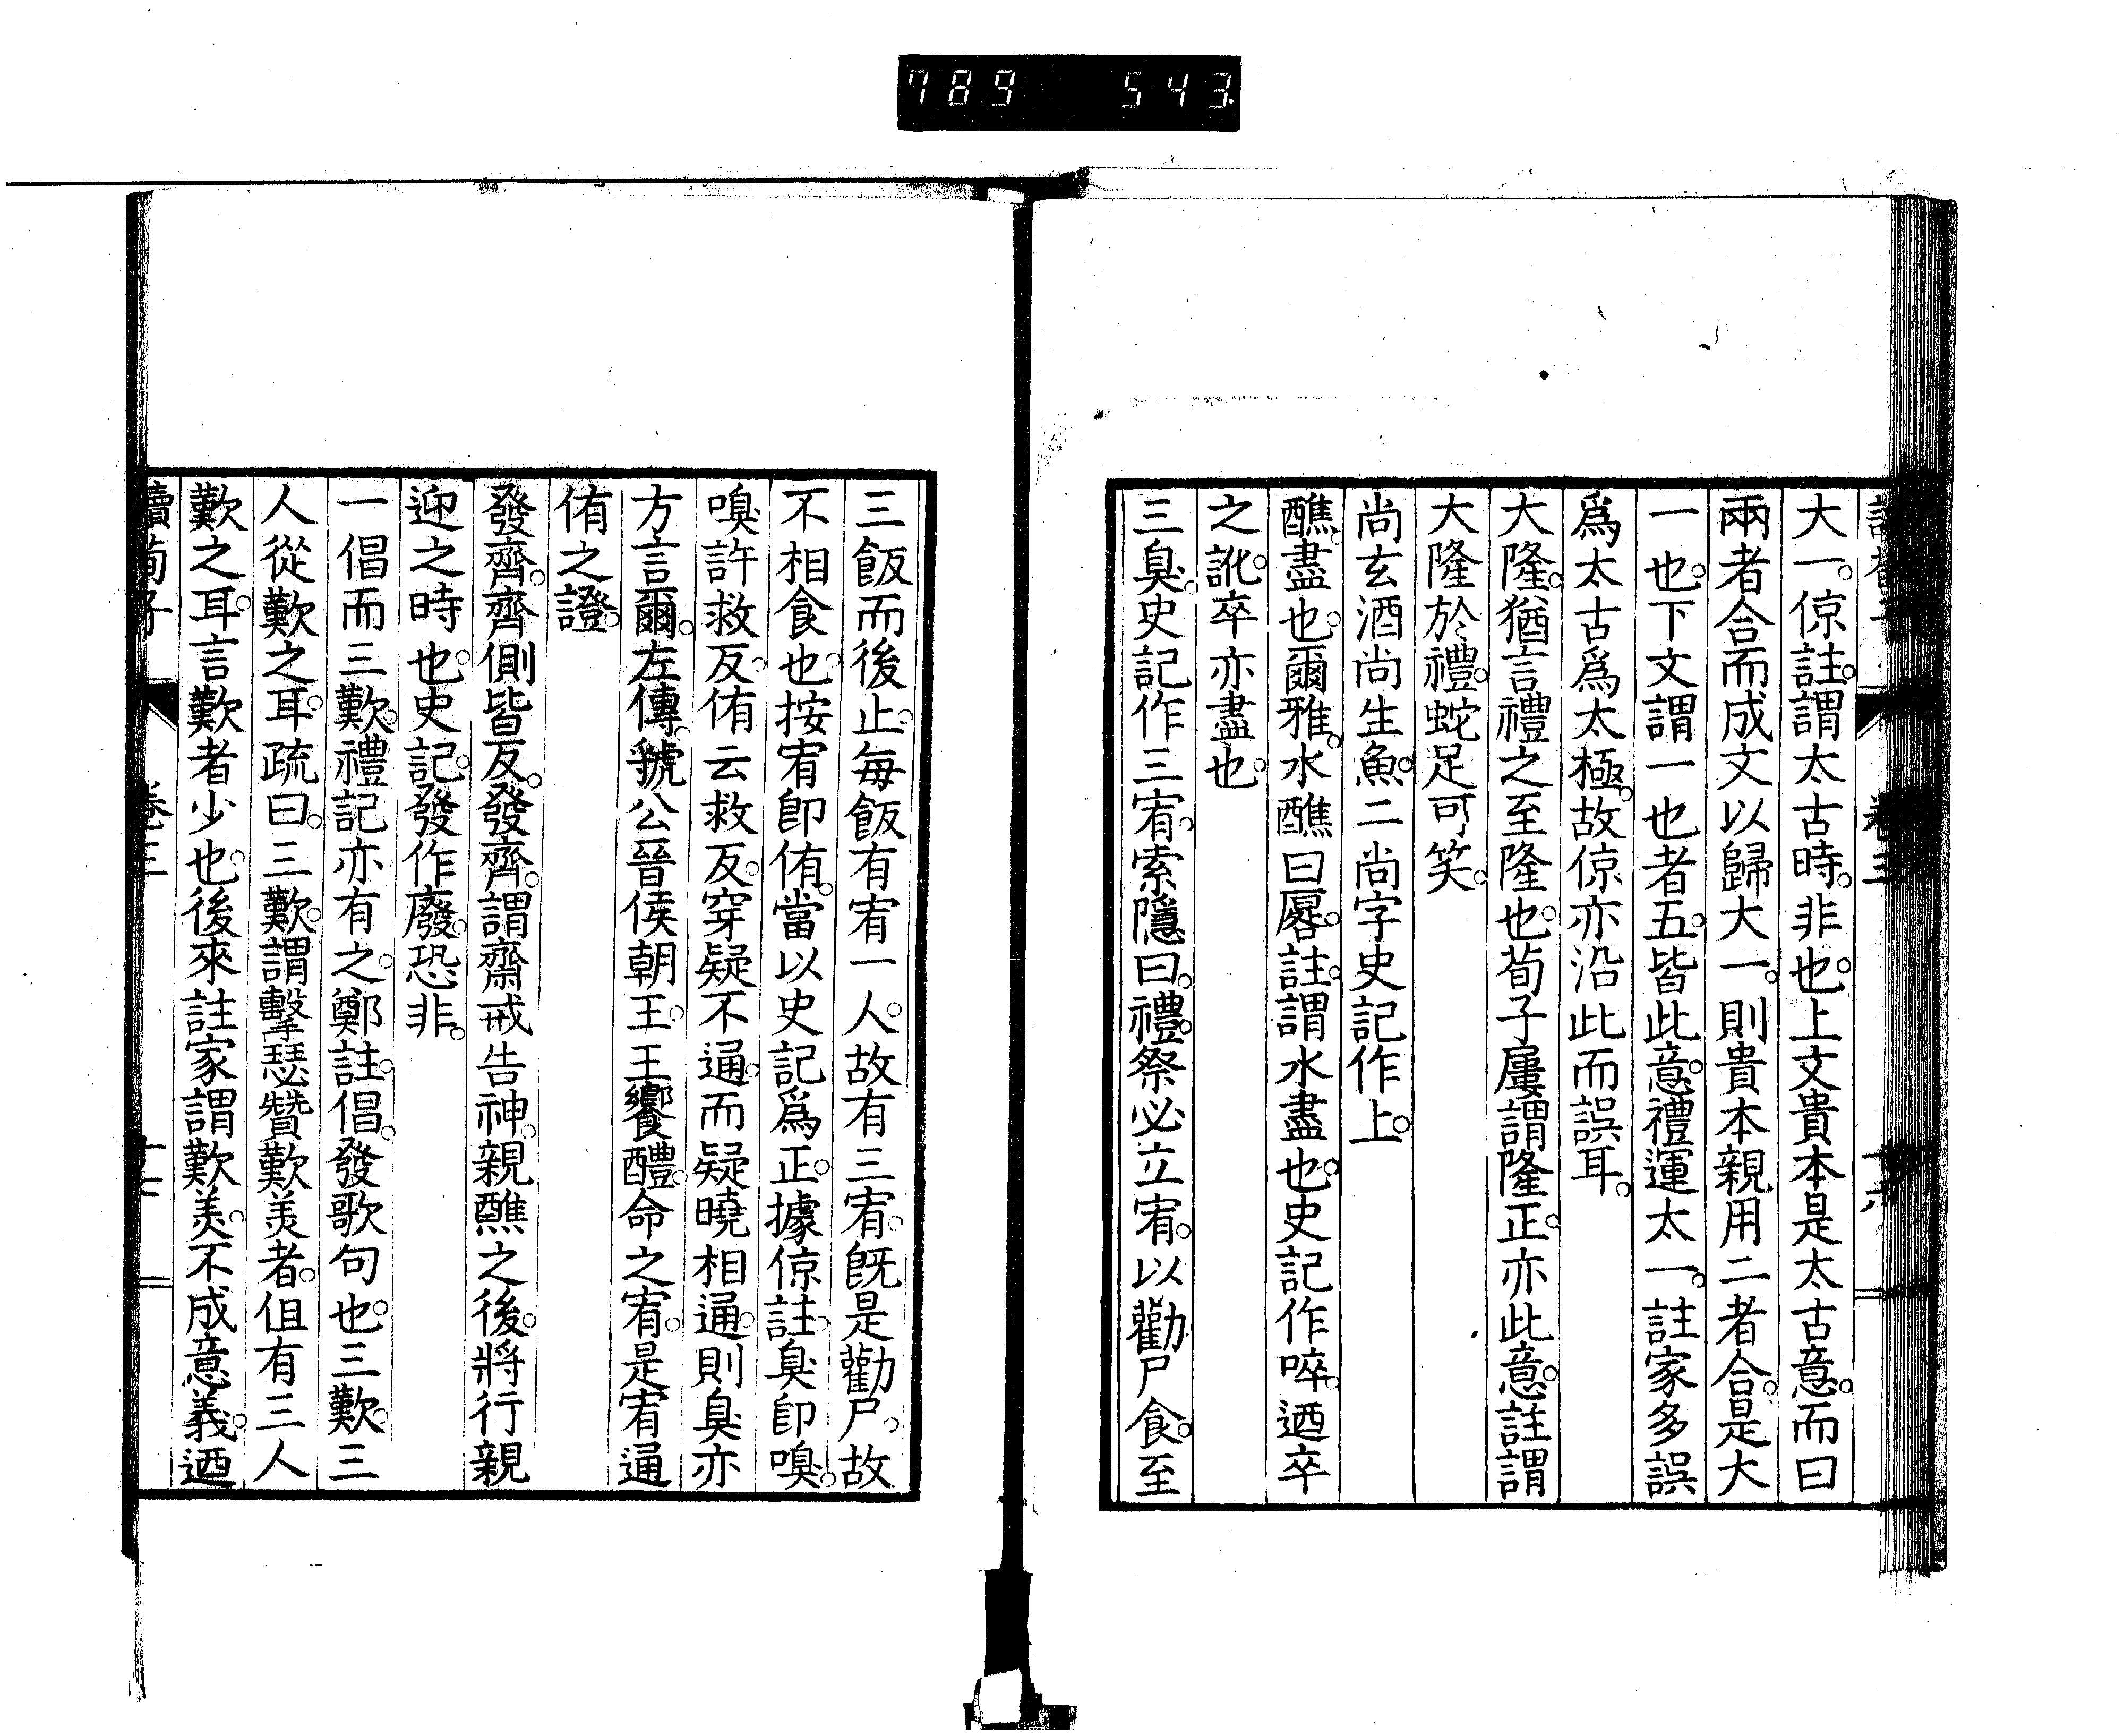 789 543
大一。倞註。謂太古時。非也。上文貴本是太古意。而曰
兩者合而成文以歸大一。則貴本親用二者合。是大
一也。下文謂一也者五。皆此意。禮運太一。註家多誤
爲太古爲太極。故倞亦沿此而誤耳。
大隆。猶言禮之至隆也。荀子屢謂隆正。亦此意。註謂
大隆於禮。蛇足可笑。
尚玄酒尚生魚。二尚字史記作上。
醮。盡也。爾雅。水醮曰厬。註。謂水盡也。史記作啐。迺卒
之訛。卒亦盡也。
三臭。史記作三宥。索隱曰。禮。祭必立宥。以勸尸食。至
三飯而後止。每飯有宥一人。故有三宥。旣是勸尸。故
不相食也。按宥卽侑。當以史記爲正。據倞註。臭卽嗅。
嗅許救反。侑云救反。穿疑不通。而疑曉相通。則臭亦
方言爾。左傳。虢公晉侯朝王。王饗醴。命之宥。是宥通
侑之證。
發齊。齊側皆反。發齊。謂齋戒告神。親醮之後。將行親
迎之時也。史記。發作廢。恐非。
一倡而三歎。禮記亦有之。鄭註。倡。發歌句也。三歎。三
人從歎之耳。疏曰。三歎。謂擊瑟贊歎美者。但有三人
歎之耳。言歎者少也。後來註家謂歎美。不成意義。迺
讀荀子 卷三 十七